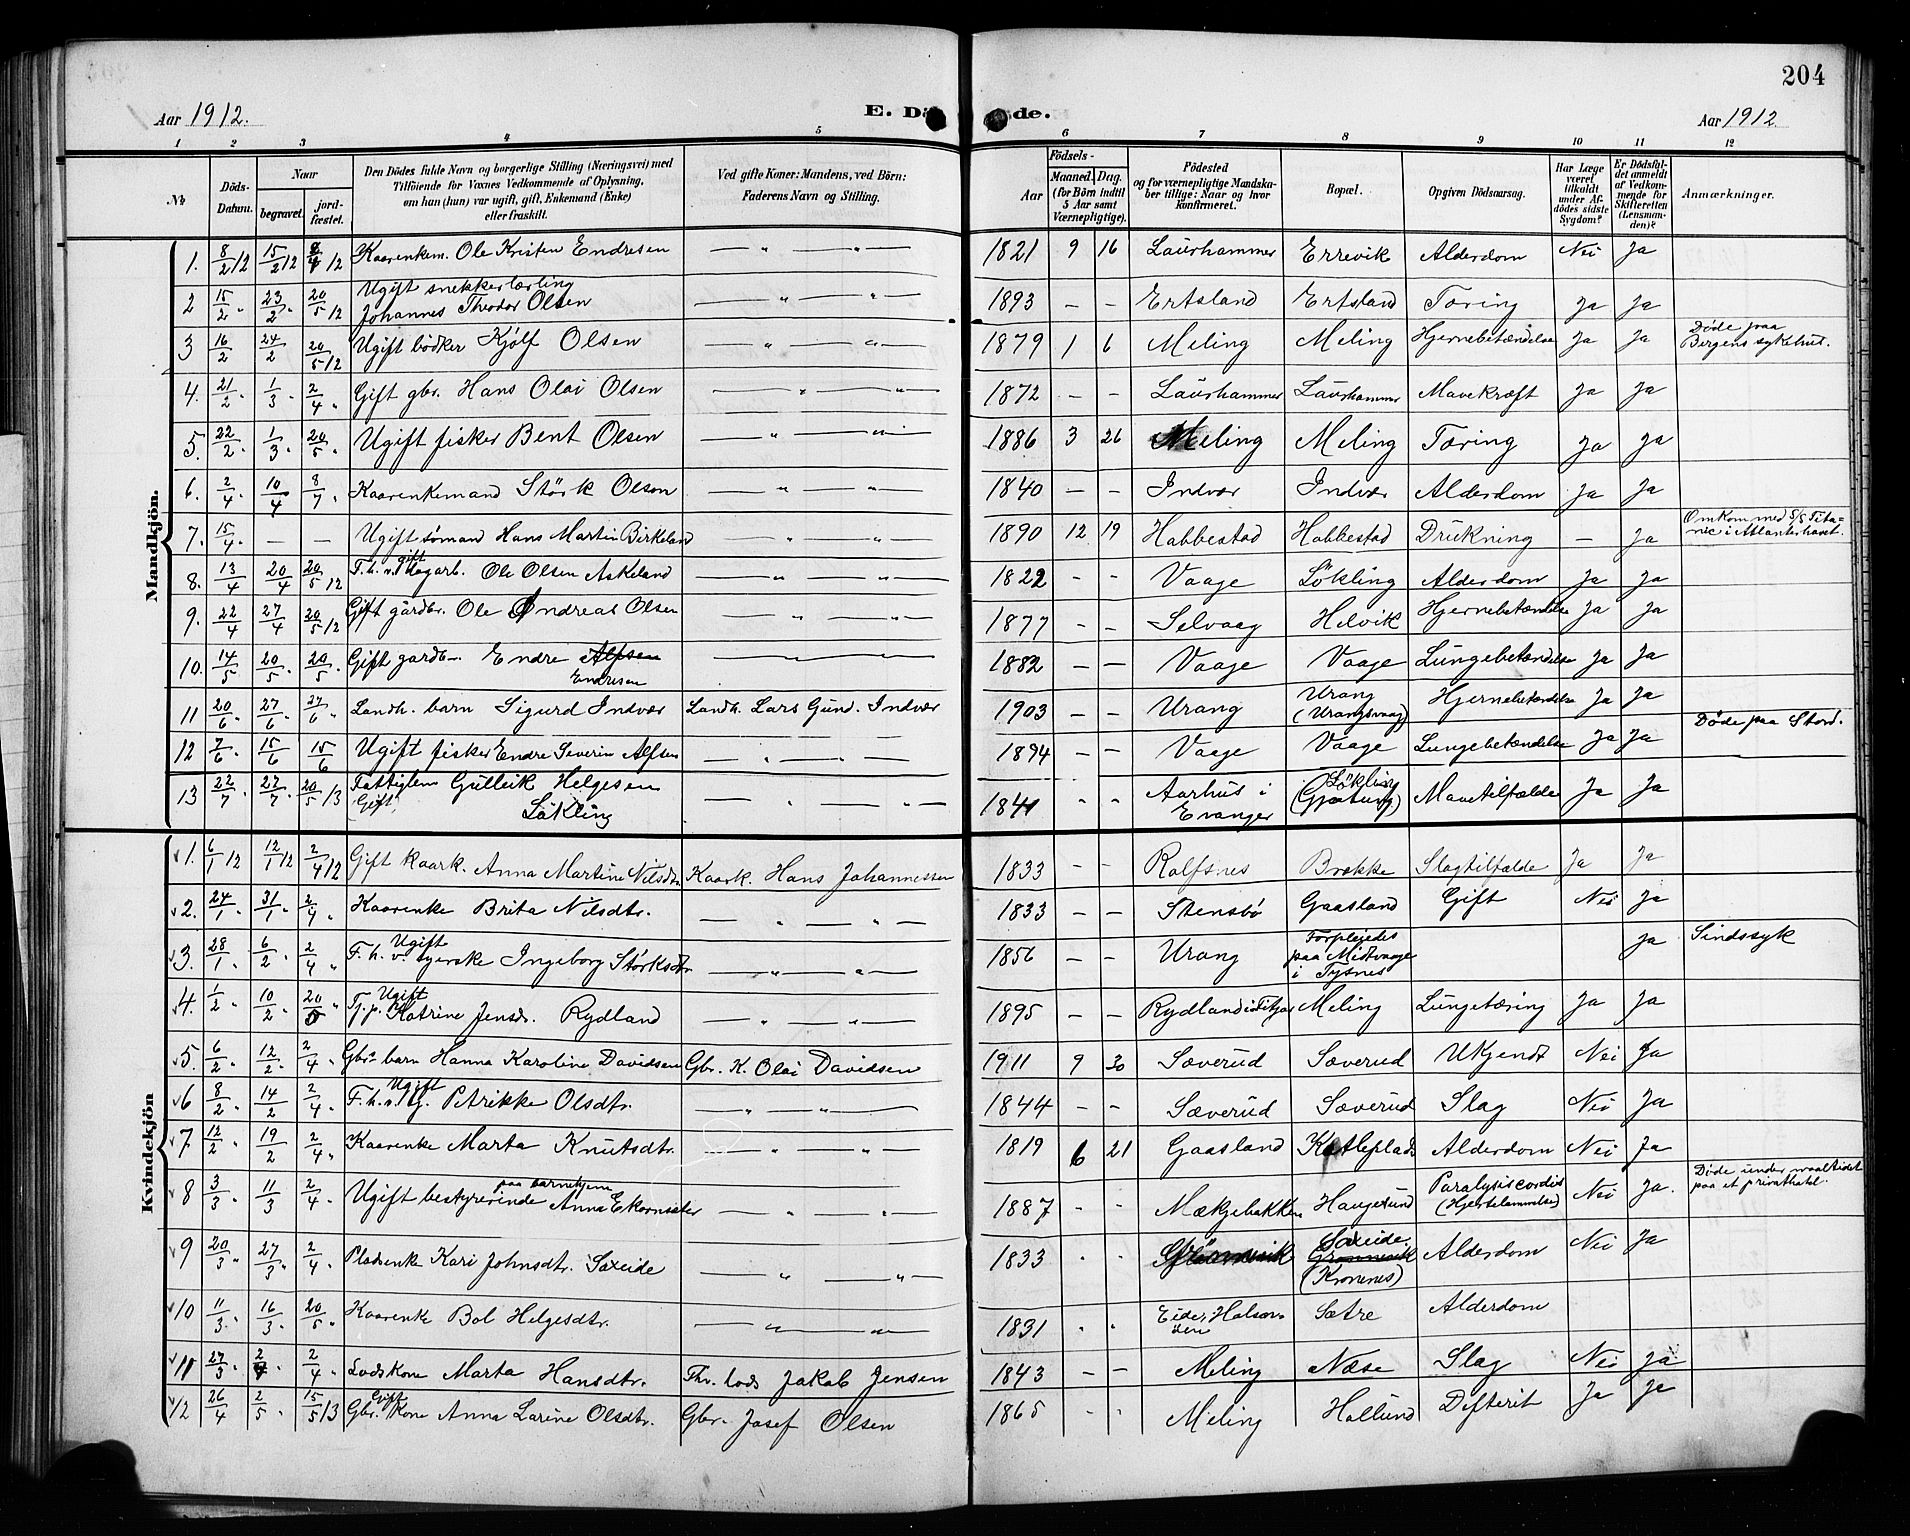 204
Aar 1912. E. Dö de. Aar 1912.
1 2 3 4 5 6 7 8 9 10 11 12
No. Döds-Datum. Naar begravet. jord-fæstet. Den Dödes fulde Navn og borgerlige Stilling (Næringsvei) med Tilföiende for Voxnes Vedkommende af Oplysning, om han (hun) var ugift, gift, Enkemand (Enke) eller fraskilt. Ved gifte Koner: Mandens, ved Börn: Faderens Navn og Stilling. Födsels- Aar Maaned. Dag. (for Börn indtil 5 Aar samt Værnepligtige). Födested og for værnepligtige Mandska-ber tillige: Naar og hvor konfirmeret. Bopæl. Opgiven Dödsaarsag. Har Læge været tilkaldt under Af-dödes sidste Sygdom? Er Dödsful-det anmeldt af Vedkom-mende for Skifteretten (Lensman-den)? Anmærkninger.
Mandkjön.
1. 8/2 12 15/2 12 2/4 12 Kaarenkem. Ole Kristen Endresen — " — " — 1821 9 16 Laurhammer Errevik Alderdom Nei Ja
2 15/2 " 23/2 " 20/5 12 Ugift snekkerlærling Johannes Theodor Olsen — " — " — 1893 — — Ertsland Ertsland Tæring Ja Ja
3 16/2 24/2 20/5 12 Ugift bödker Kjölf Olsen — " — " — 1879 1 6 Meling Meling Hjernebetændelse Ja Ja Døde paa Bergens sykehus.
4. 21/2 " 1/3 " 2/4 " Gift gbr. Hans Olai Olsen — " — " 1872 — — Laurhammer Laurhammer Mavekræft Ja Ja
5. 22/2 " 1/3 " 20/5 " Ugift fisker Bent Olsen — " — " — 1886 3 26 Meling Meling Tæring Ja Ja
6. 2/4 " 10/4 8/7 " Kaarenkemand Störk Olson — " — " — 1840 — — Indvær Indvær Alderdom Ja Ja
7. 15/4 " — — Ugift sömand Hans Martin Birkeland — " — " — 1890 12 19 Habbestad Habbestad Drukning — Ja Omkom med S/S Tita-nic i Atlanterhavet.
8. 13/4 20/4 20/5 12 F. h. v. gift Ole Olsen Askeland — " — " — 1822 - - Vaage Lökling Alderdom Ja Ja
9. 22/4 27/4 20/5 12 Gift gårdbr. Ole Andreas Olsen — " — " — 1877 — — Selvaag Helvik Hjernebetændelse Ja Ja
10. 14/5 20/5 " 20/5 " Gift gardb— Endre Alfsen Endresen — " — " — 1882 — — Vaage Vaage Lungebetændelse Ja Ja
11 20/6 " 27/6 " 27/6 " Landh. barn Sigurd Indvær Landh. Lars Gund. Indvær 1903 — — Urang Urang (Urangsvaag) Hjernebetændelse Ja Ja
12 7/6 " 15/6 15/6 Ugift fisker Endre Severin Alfsen — " — " — 1894 — — Vaage Vaage Lungebetændelse Ja Ja Døde paa Stord.
13 22/7 27/7 20/5 13 Fattiglem Gulleik Helgesen Gift Lökling — " — " — 1841 " " Aarhus i Evanger Lökling Mavetilfælde Ja Ja
Kvindekjön
1. 6/1 12 12/1 12 2/4 12 Gift kaark. Anna Martine Nilsdtr Kaark. Hans Johannessen 1833 — — Rolfsnes Brække Slagtilfælde Ja Ja
2. 24/1 " 31/1 " 2/4 Kaarenke Brita Nilsdtr. — " — " — 1833 — — Stensbö Gaasland Gift Nei Ja
3. 28/1 " 6/2 " 2/4 " F. h. v. Ugift Ingeborg Störksdtr — " — " — 1856 — — Urang Forpleiedes paa Mistvaage i Tysnes Ja Sindssyk
4. 1/2 " 10/2 " 20/5 " Tj. p. Ugift Katrine Jensdr. Rydland — " — " — 1895 — — Rydland i Fitjar Meling Lungetæring Ja Ja
5. 6/2 " 12/2 " 2/4 " Gbr. barn Hanna Karoline Davidsen Gbr. K. Olai Davidsen 1911 9 30 Sæverud Sæverud Ukjendt Nei Ja
6 8/2 " 14/2 2/4 " F. h. v. Ugift Petrikke Olsdtr. — " — " — 1844 — — Sæverud Sæverud Slag Nei Ja
7 12/2 " 19/2 2/4 " Kaarenke Marta Knutsdtr. — " — " — 1819 6 21 Gaasland Alderdom Nei Ja
8 3/3 " 11/3 2/4 " Ugift bestyrerinde paa barnehjem Anna Ekornsæter — " — " — 1887 " " Mækjebakken Haugesund Paralysis cordis (Hjertelammelse) Nei Ja. Døde under maaltidet paa et privathotel.
9 20/3 " 27/3 " 2/4 " Pladsenke Kari Johnsdtr. Sæxeide — " — " 1833 " " Sæxeide (Kronenes) Alderdom Nei Ja
10 11/3 " 16/3 " 20/5 " Kaarenke Bol Helgesdtr. — " — " — 1831 " " Sætre Alderdom
11 27/3 " 2/4 " 2/4 " Lodskone Marta Hansdtr. Fhv. Lods Jakob Jensen 1843 — — Meling Næse Slag Nei Ja
12 26/4 2/5 " 15/5 13 Gbr. Gift Kone Anna Larine Olsdtr. Gbr. Josef Olsen 1865 " " Meling Hallund Difterit Ja Ja